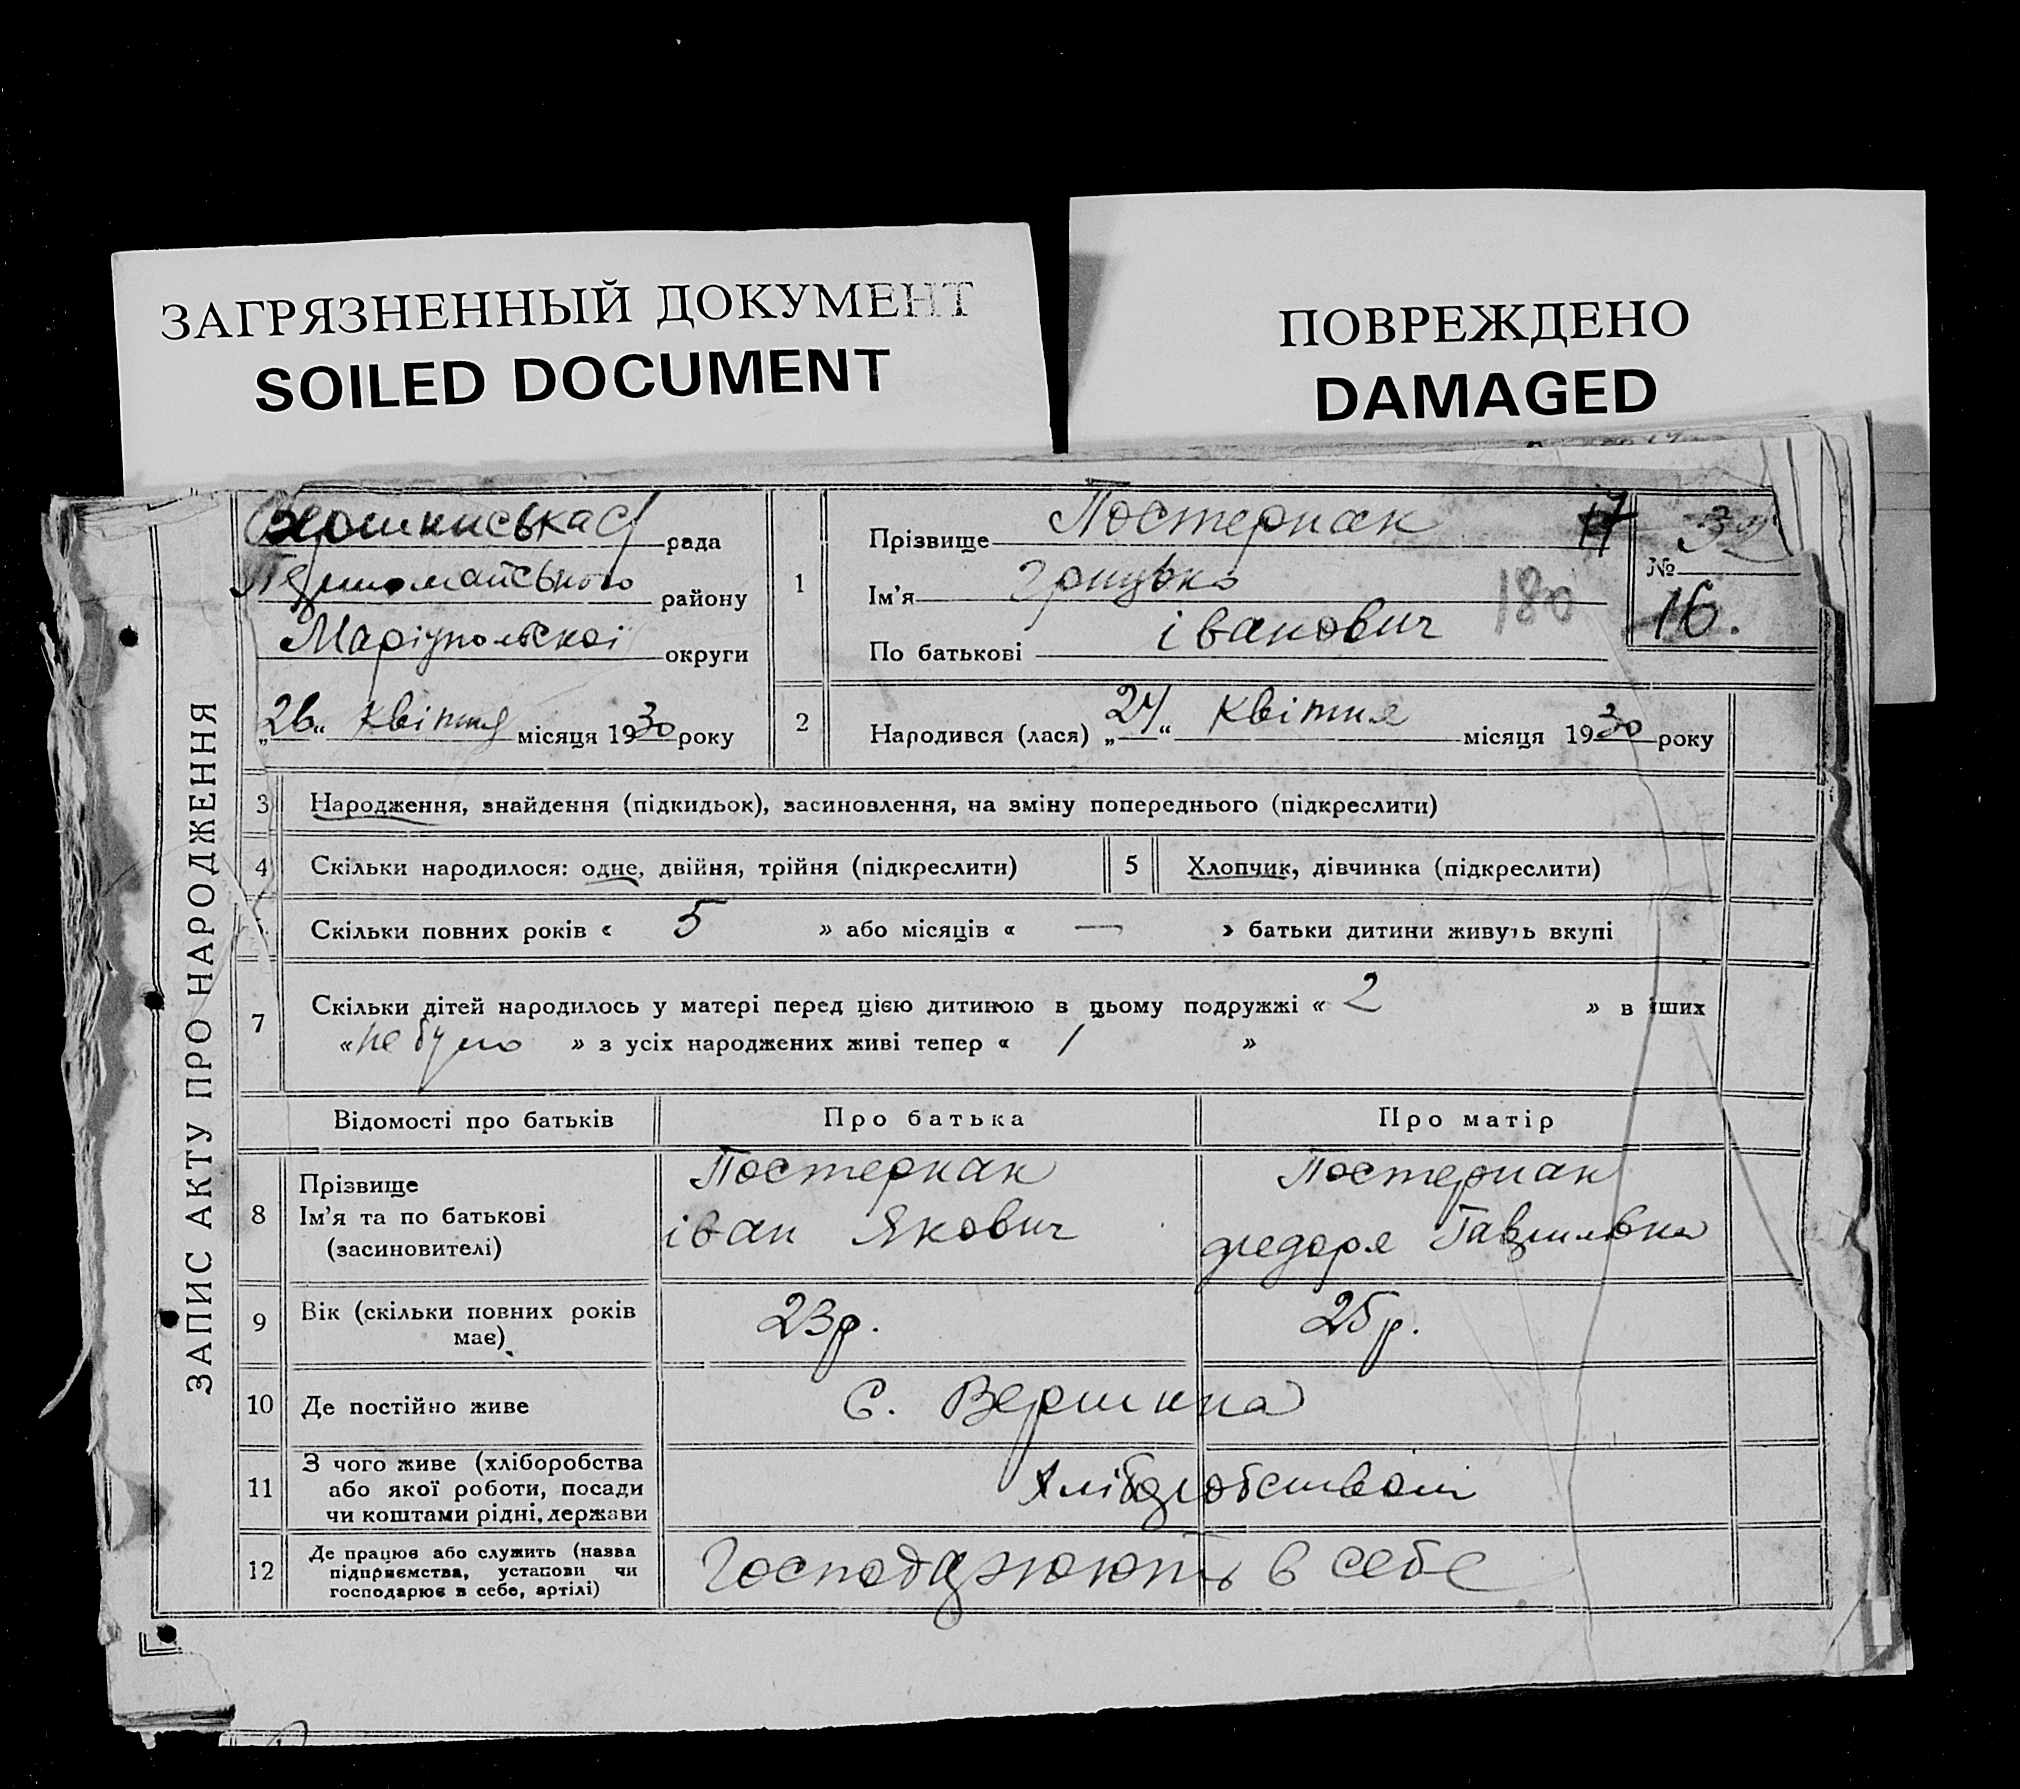 ЗАГРЯЗНЕННЫЙ ДОКУМЕНТ
SOILED DOCUMENT
ПОВРЕЖДЕНО
DAMAGED
ЗАПИС АКТУ ПРО НАРОДЖЕННЯ
рада
Першомайського району
Маріупольскоі округи
„26“ квітня місяця 1930 року
1
Прізвище Постернак
Ім’я Грицько
180
По батькові іванович
17
№ 32
16.
2 Народився (лася) „24“ квітня місяця 1930 року
3 Народження, знайдення (підкидьок), засиновлення, на зміну попереднього (підкреслити)
4 Скільки народилося: одне, двійня, трійня (підкреслити) 5 Хлопчик, дівчинка (підкреслити)
Скільки повних років « 5 » або місяців « — » батьки дитини живуть вкупі
7 Скільки дітей народилось у матері перед цією дитиною в цьому подружжі « 2 » в інших
« не було » з усіх народжених живі тепер « 1 »
Відомості про батьків Про батька Про матір
8 Прізвище Постернак Постернак
Ім’я та по батькові іван Якович федоря Гаврилівна
(засиновителі)
9 Вік (скільки повних років має) 23р. 25р.
10 Де постійно живе С. Вершина
11 З чого живе (хліборобства Хліборобством
або якої роботи, посади
чи коштами рідні, держави
12 Де працює або служить (назва Господарюють в себе
підприємства, установи чи
господарює в себе, артілі)